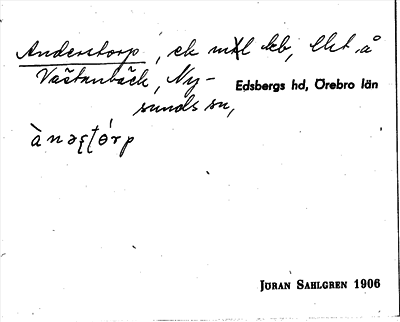 Anderstorp, ek mxl kb, llet å
Västanbäck, Ny-
sunds sn,
Edsbergs hd, Örebro län
JÖRAN SAHLGREN 1906